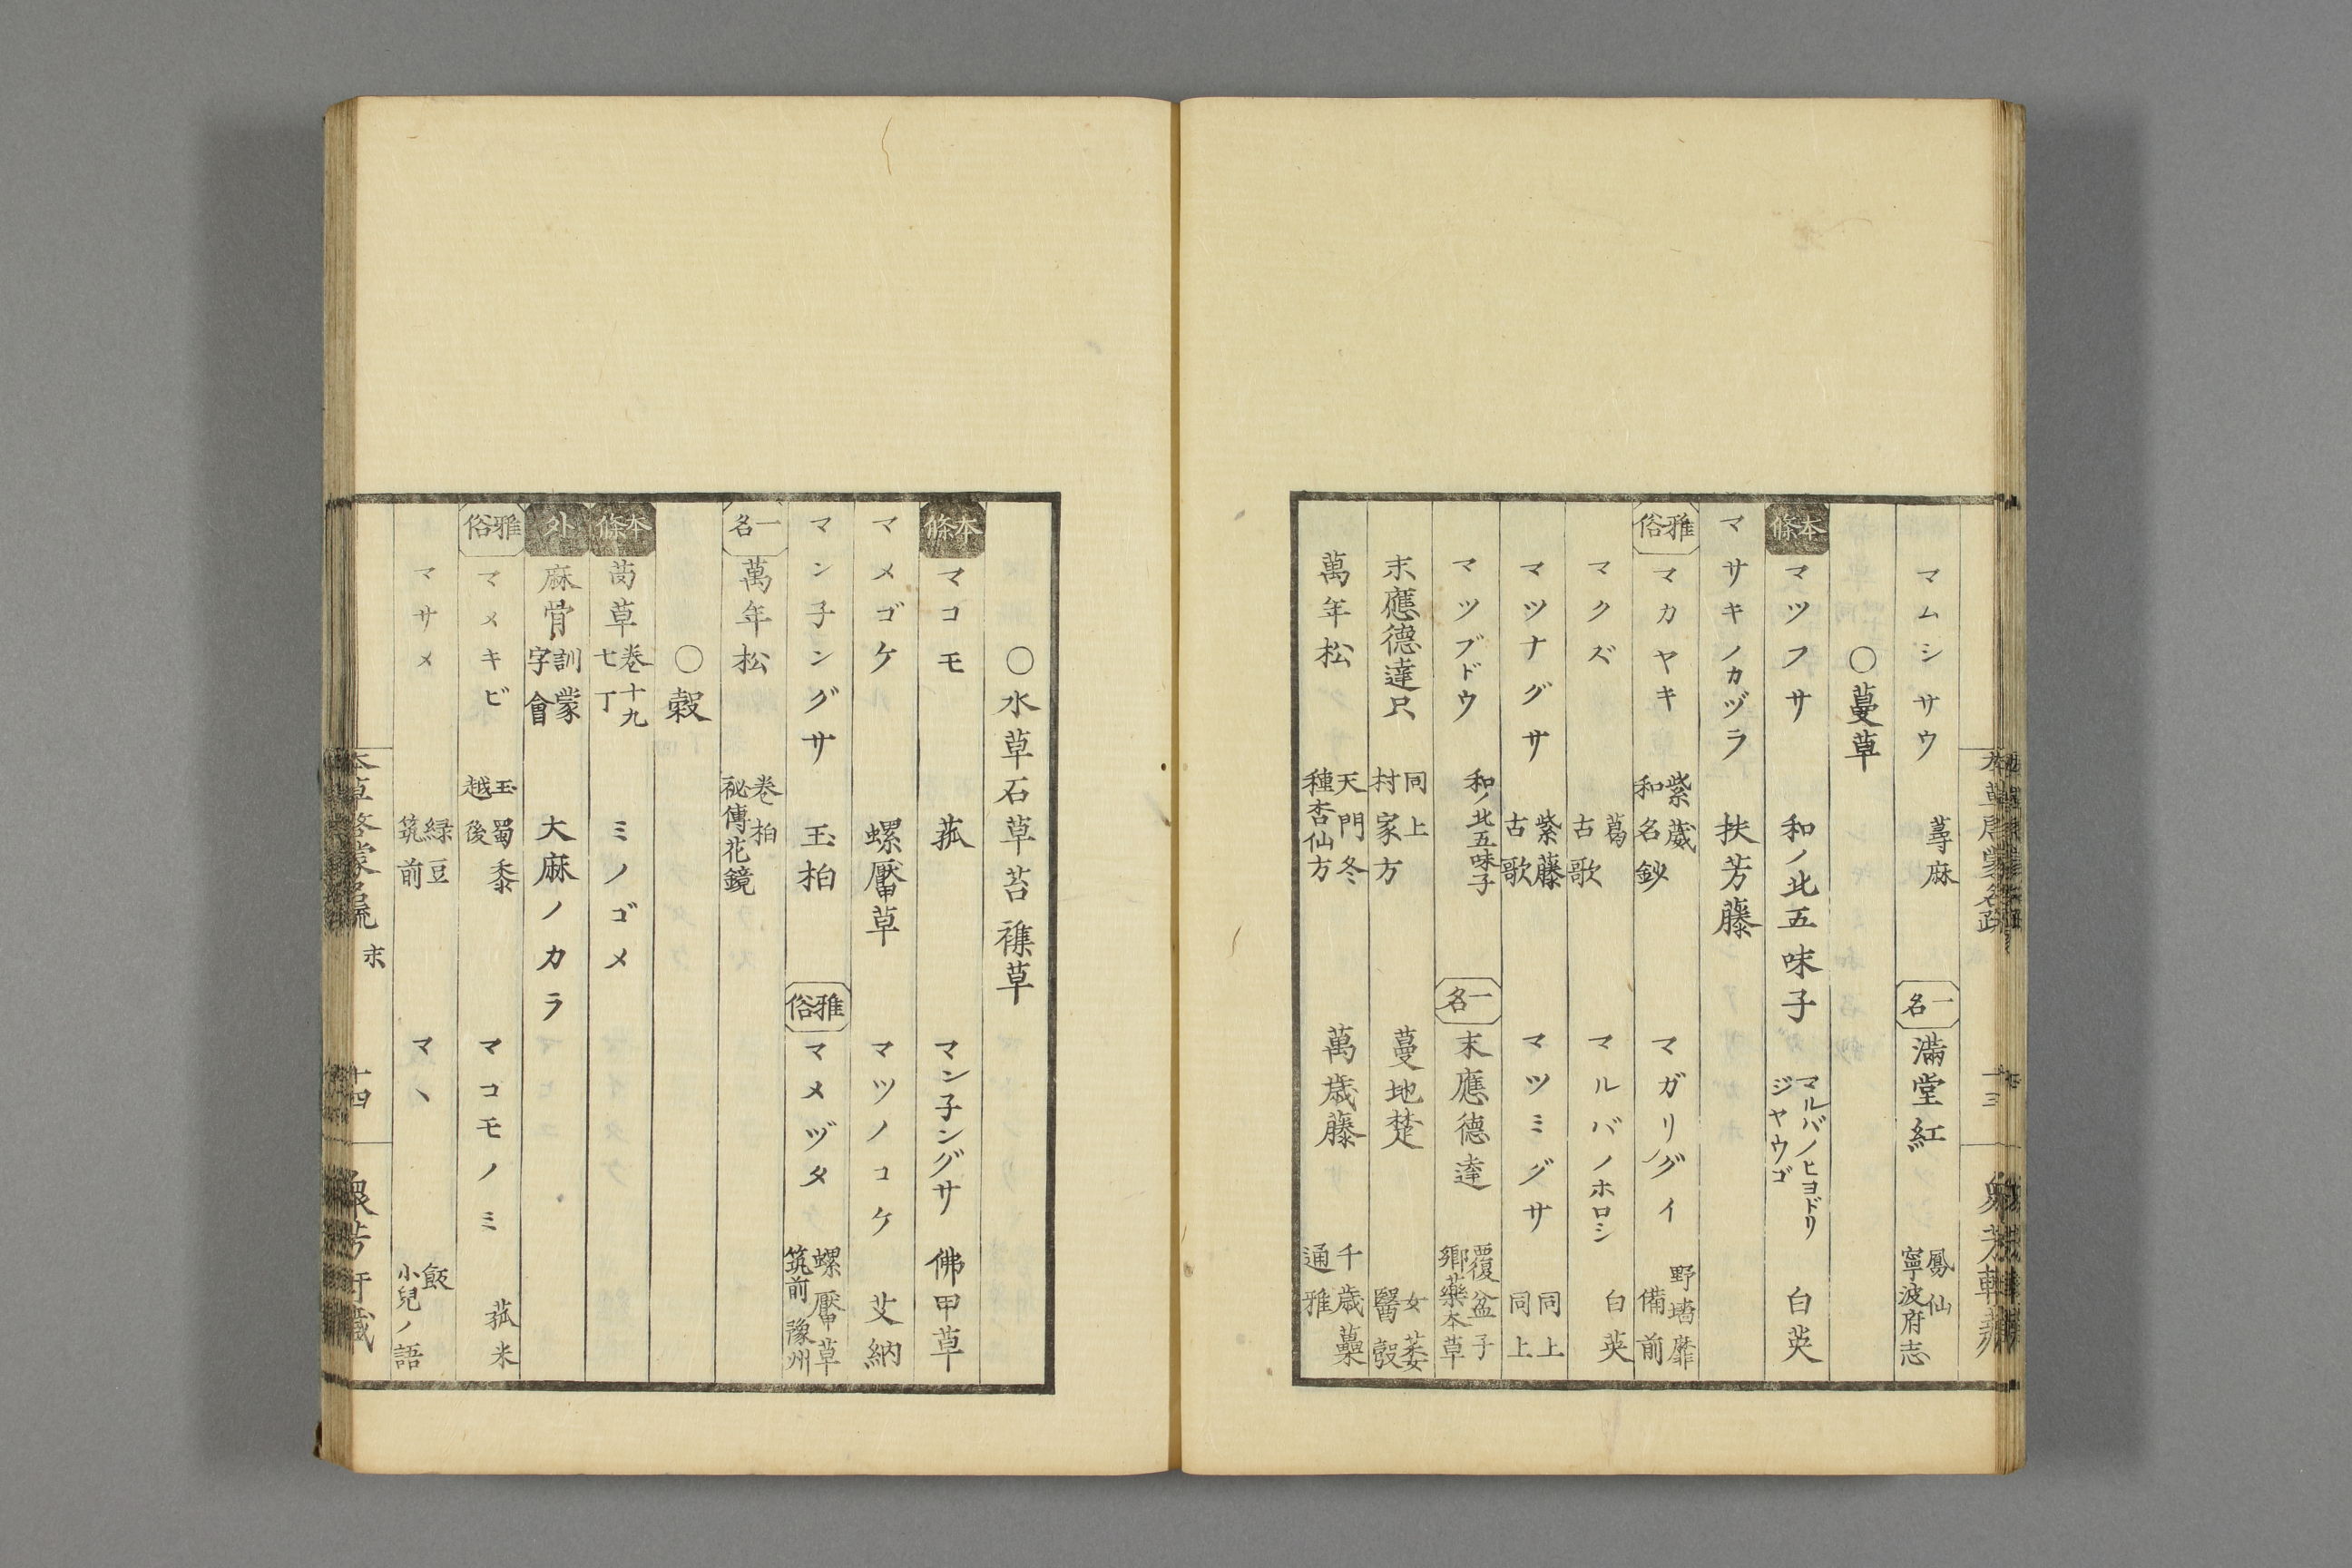 マムシサウ 蕁麻 一名 滿堂紅 鳳仙 寧波府志
〇蔓草
本條 マツフサ 和ノ北五味子 マルバノヒヨドリジヤウゴ 白英
マサキノカヅラ 扶芳藤
雅俗 マカヤキ 紫葳 和名鈔 マガリグイ 野墻蘼 備前
マクズ 葛 古歌 マルバノホロシ 白英
マツナグサ 紫藤 古歌 マツミグサ 同上 同上
マツブドウ 和ノ北五味子 一名 末應德達 覆盆子 鄉藥本草
末應德達只 同上 村家方 蔓地楚 女萎 醫彀
萬年松 天門冬 種杏仙方 萬歳藤 千歳虆 通雅
〇水草石草苔襍草
本條 マコモ 菰 マン子ングサ 佛甲草
マメゴケ 螺厴草 マツノコケ 艾納
マン子ングサ 玉柏 雅俗 マメヅタ 螺厴草 筑前 豫州
一名 萬年松 卷柏 祕傳花鏡
〇穀
本條 䒷草 卷十九 七丁 ミノゴメ
外 麻骨 訓蒙字會 大麻ノカラ
雅俗 マメキビ 玉蜀黍 越後 マコモノミ 菰米
マサメ 緑豆 筑前 マヽ 飯 小兒ノ語
末
十四